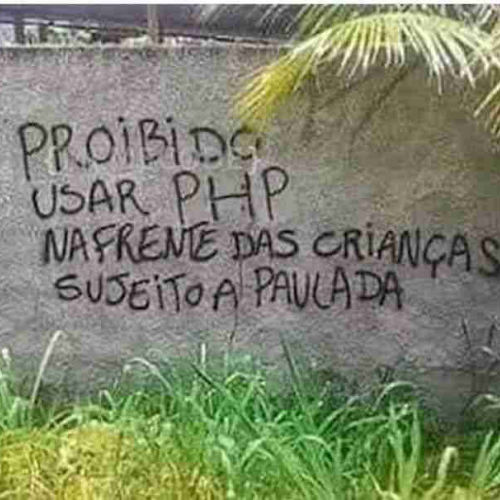 PROIBIDO
USAR PHP
NA FRENTE DAS CRIANÇAS
SUJEITO A PAULADA